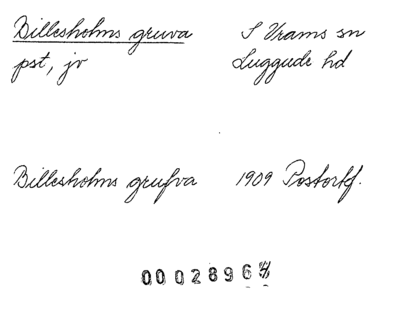 Billesholms gruva S Vrams sn
pst, jv Luggude hd
Billesholms grufva 1909 Postortf.
00028964